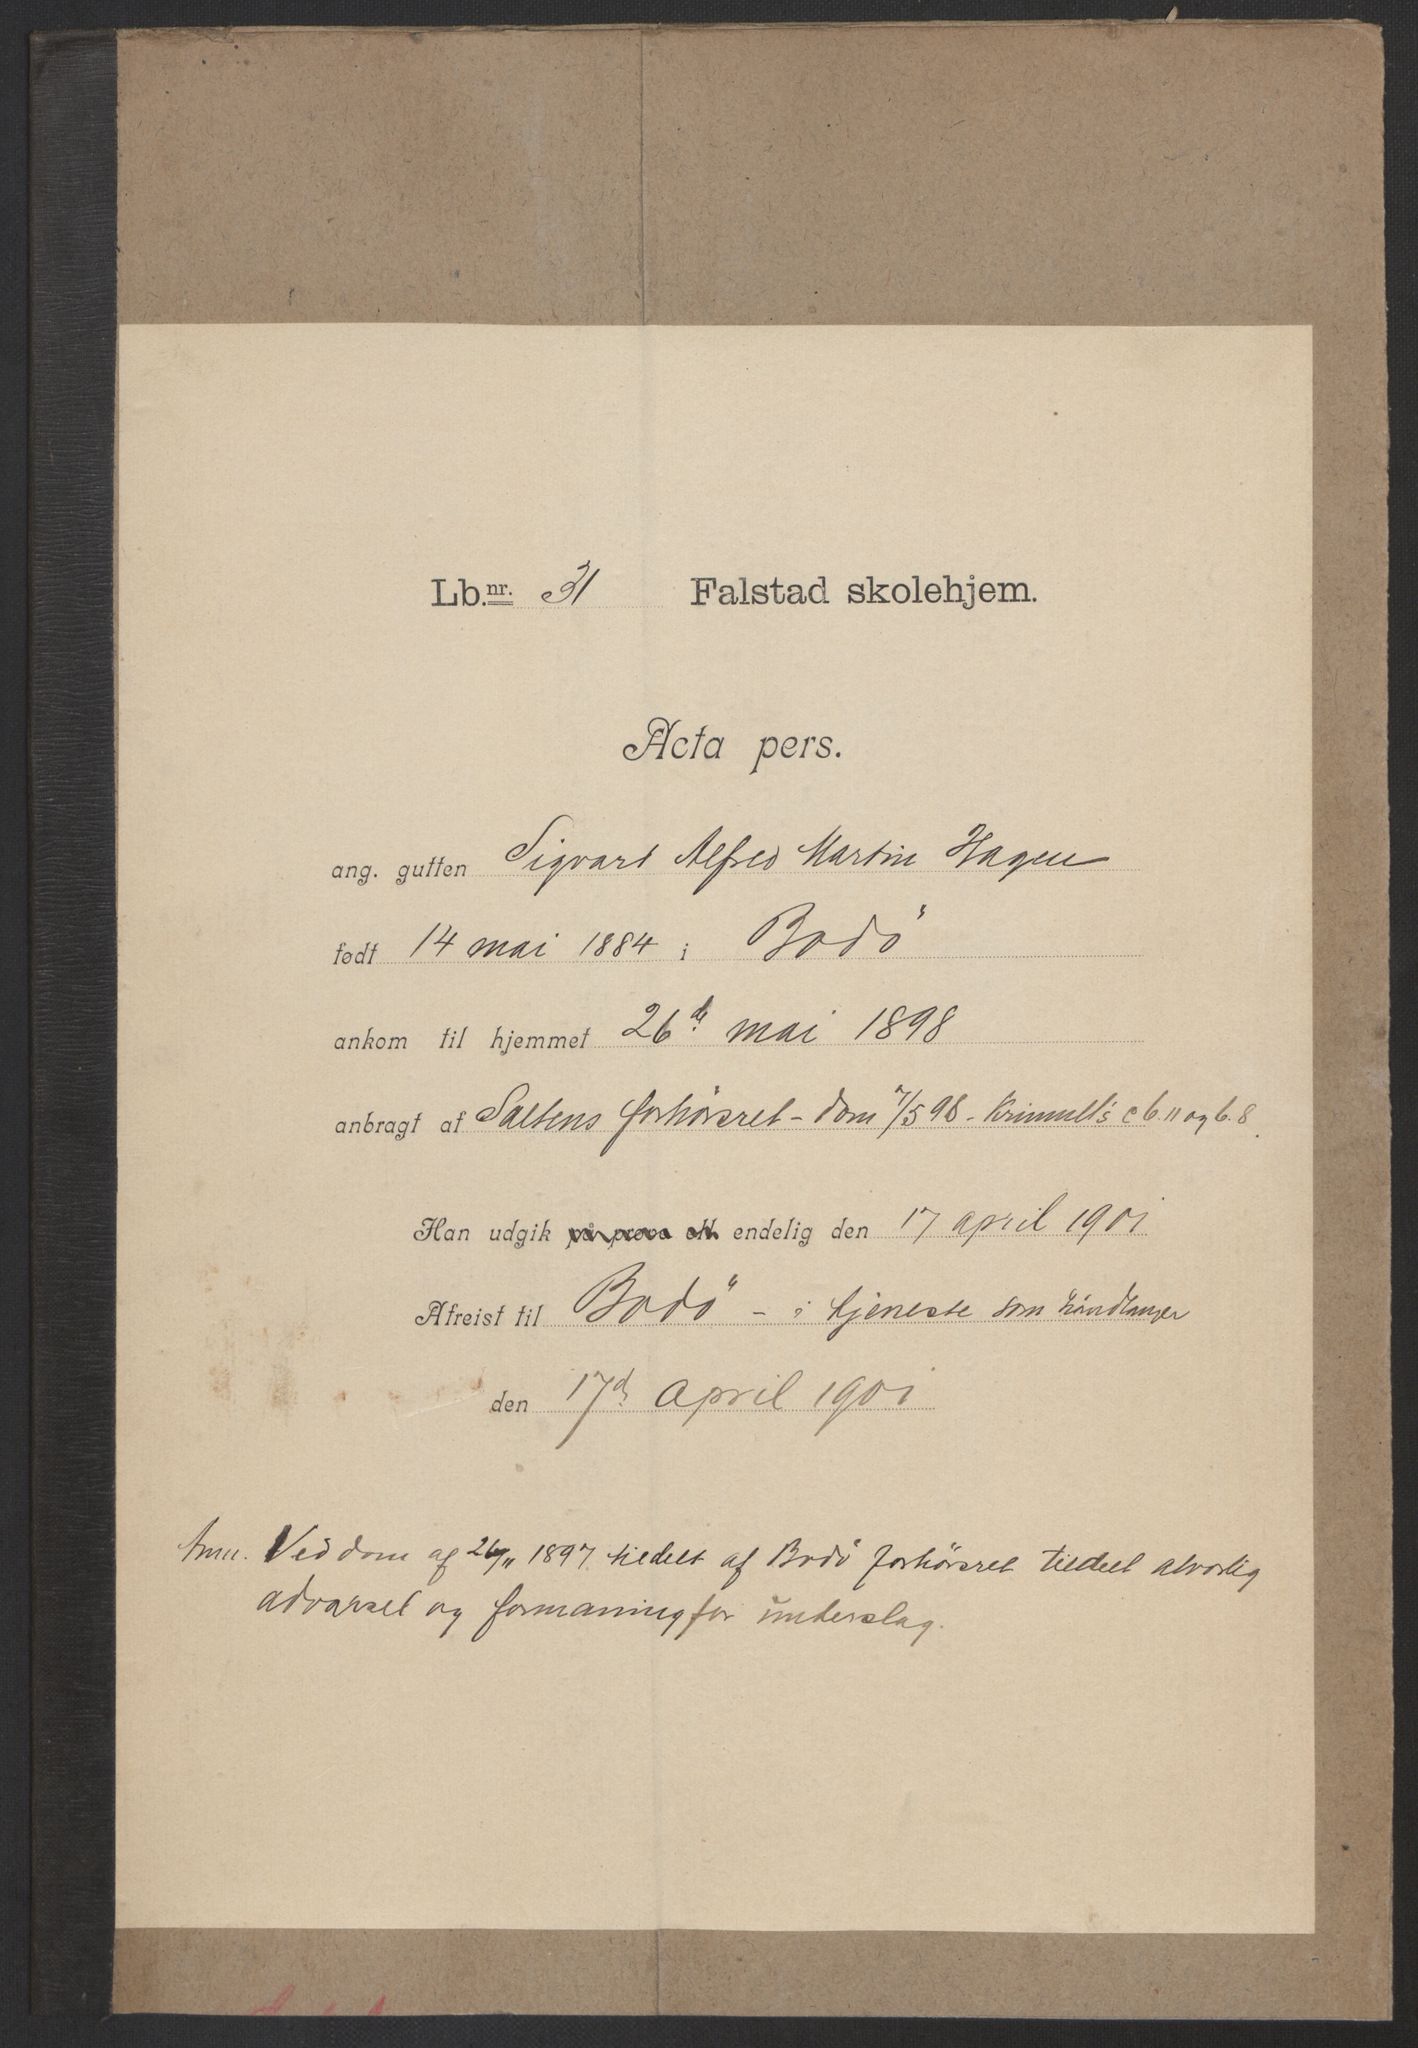 Lb.nr. 31 Falstad skolehjem.
Acta pers.
ang. gutten Sigvart Alfred Martin Hagen
født 14 mai 1884 i Bodö
ankom til hjemmet 26de mai 1898
anbragt af Saltens forhörsret - dom 7/5 98 - Kriminall's c 6. 11 og 6. 8.
Han udgik på prøve ell. endelig den 17 april 1901
Afreist til Bodö - i tjeneste som håndlanger
den 17de april 1901
Anm. Ved dom af 1897 tildelt af Bodö forhörsret tildelt alvorlig
advarsel og formaning for underslag.